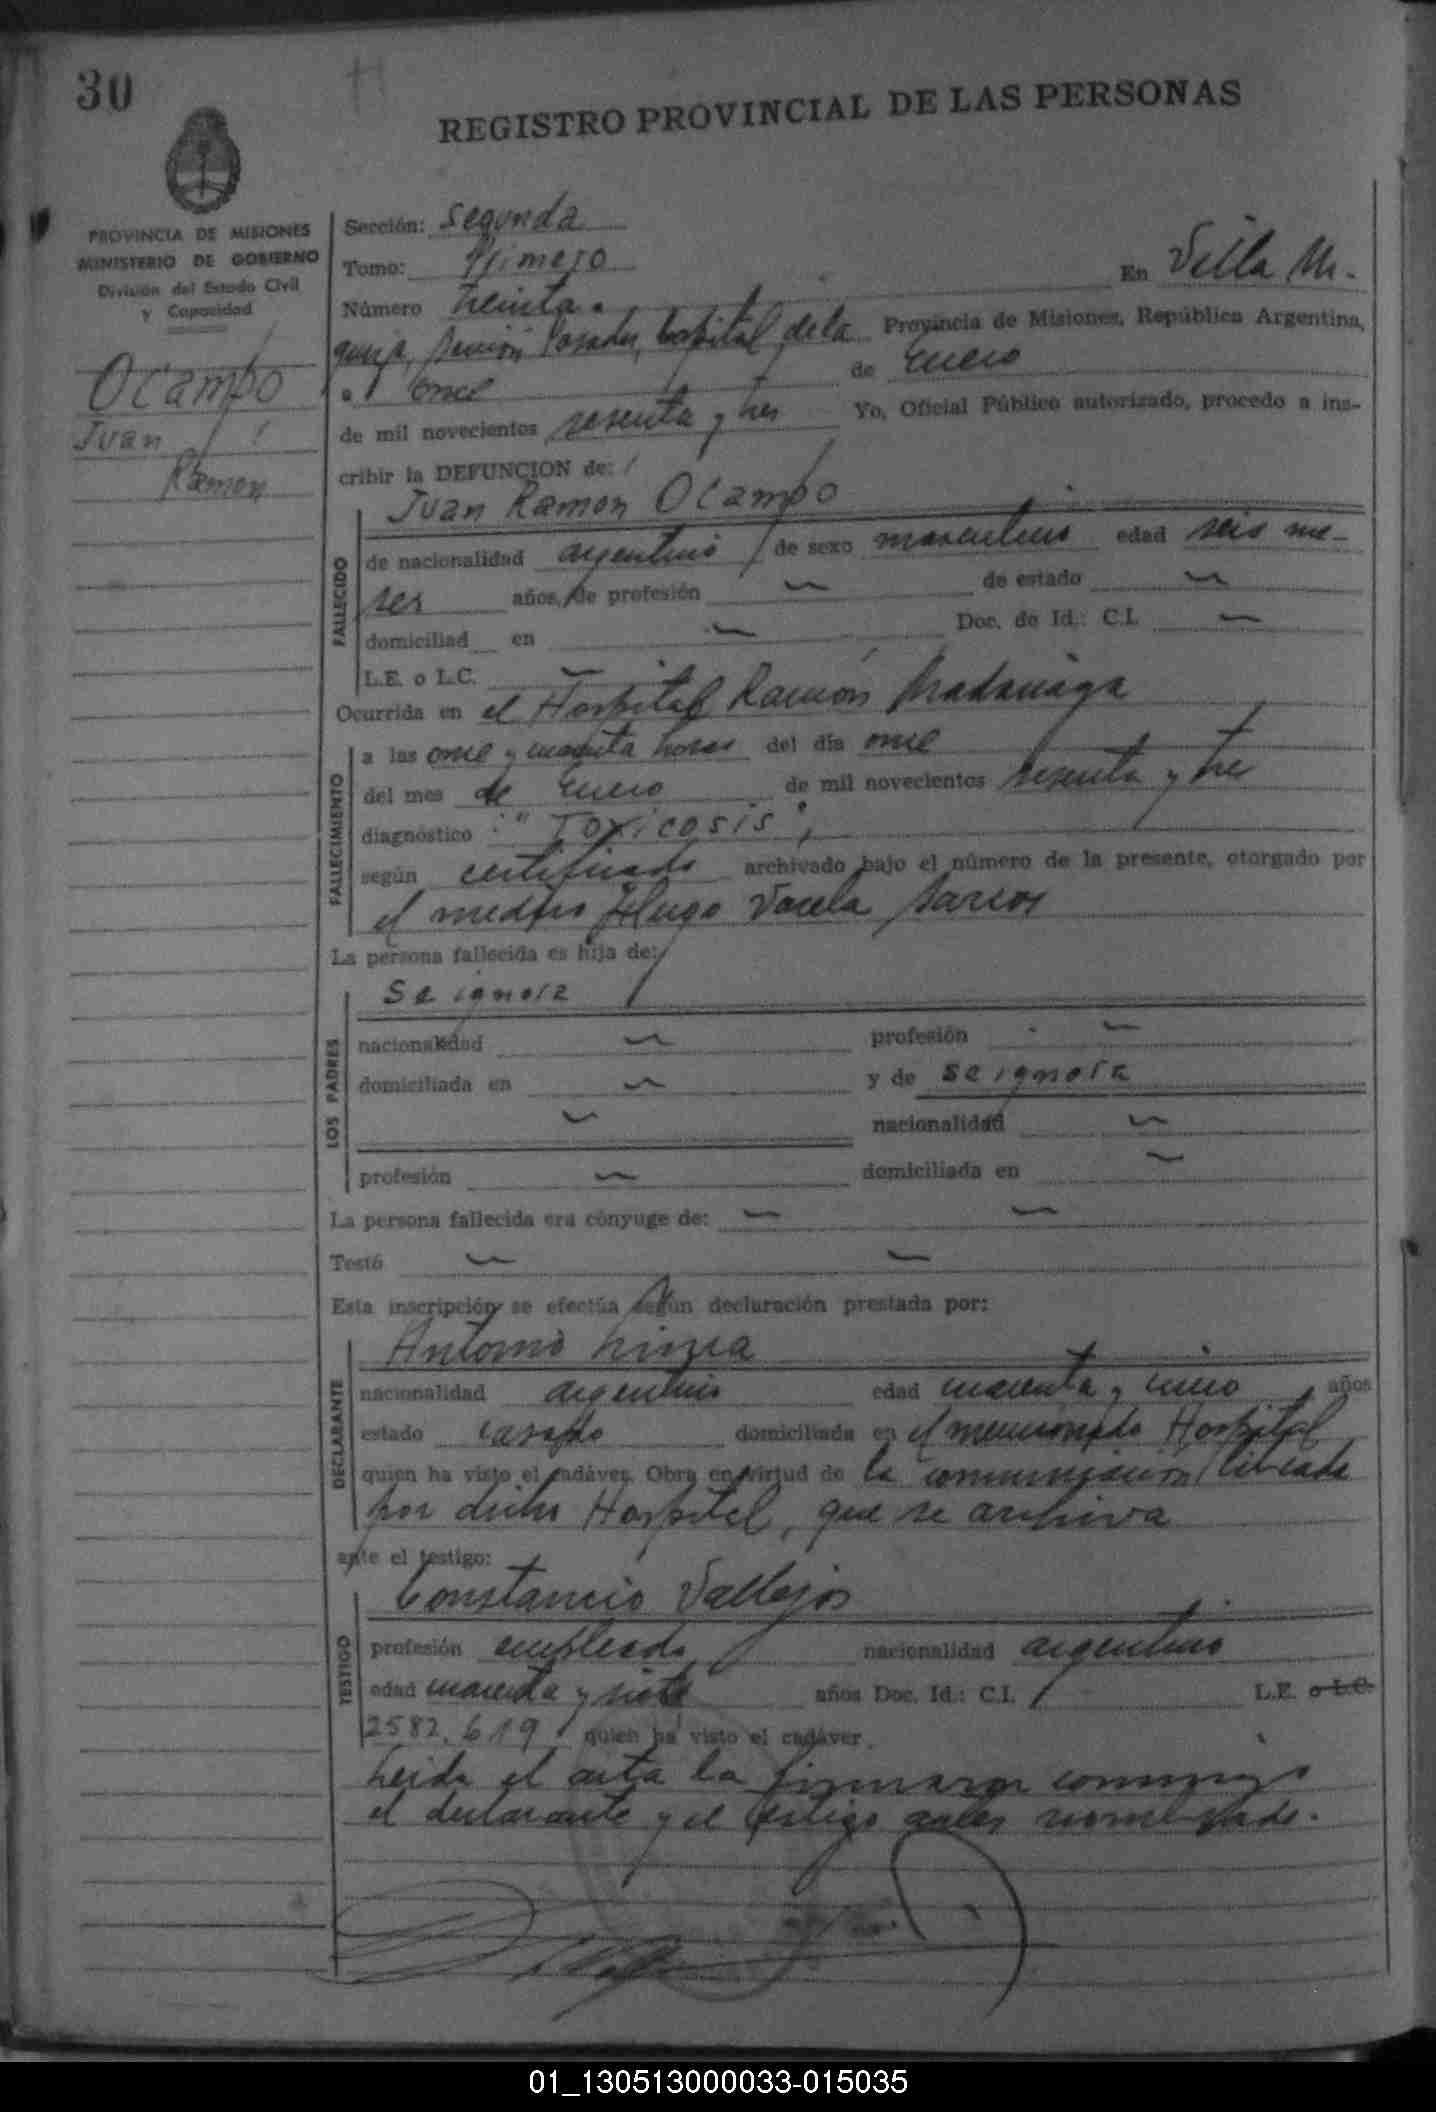 30
REGISTRO PROVINCIAL DE LAS PERSONAS
PROVINCIA DE MISIONES
MINISTERIO DE GOBIERNO
División del Estado Civil
y Capacidad
Ocampo
Juan
Ramon
Sección: Segunda
Tomo: Primero
En Villa U-
Número treinta.
Posadas, hospital de la Provincia de Misiones, República Argentina,
a once de Enero
de mil novecientos sesenta y tres Yo, Oficial Público autorizado, procedo a ins-
cribir la DEFUNCION de:
Juan Ramon Ocampo
FALLECIDO
de nacionalidad argentino de sexo masculino edad seis me-
ses años, de profesión de estado
domiciliad en Doc. de Id.: C.I.
L.E. o L.C.
Ocurrida en el Hospital Ramón Madariaga
FALLECIMIENTO
a las once y cuarenta horas del día once
del mes de Enero de mil novecientos sesenta y tres
diagnóstico : "Toxicosis",
según certificado archivado bajo el número de la presente, otorgado por
el medico Hugo Varela
La persona fallecida es hija de:
Se ignora
LOS PADRES
nacionalidad profesión
domiciliada en y de se ignora
nacionalidad
profesión domiciliada en
La persona fallecida era cónyuge de:
Testó
Esta inscripción se efectúa según declaración prestada por:
Antonio
DECLARANTE
nacionalidad argentino edad cuarenta y cinco años
estado casado domiciliada en el mencionado Hospital
quien ha visto el cadáver. Obra en virtud de la comunicación librada
por dicho Hospital, que se archiva
ante el testigo:
Constancio Vallejos
TESTIGO
profesión empleado nacionalidad argentino
edad cuarenta y siete años Doc. Id.: C.I. L.E. o L.C.
2582.619 quien ha visto el cadáver.
Leida el acta la firmaron conmigo
el declarante y el testigo antes nombrado.
01_130513000033-015035